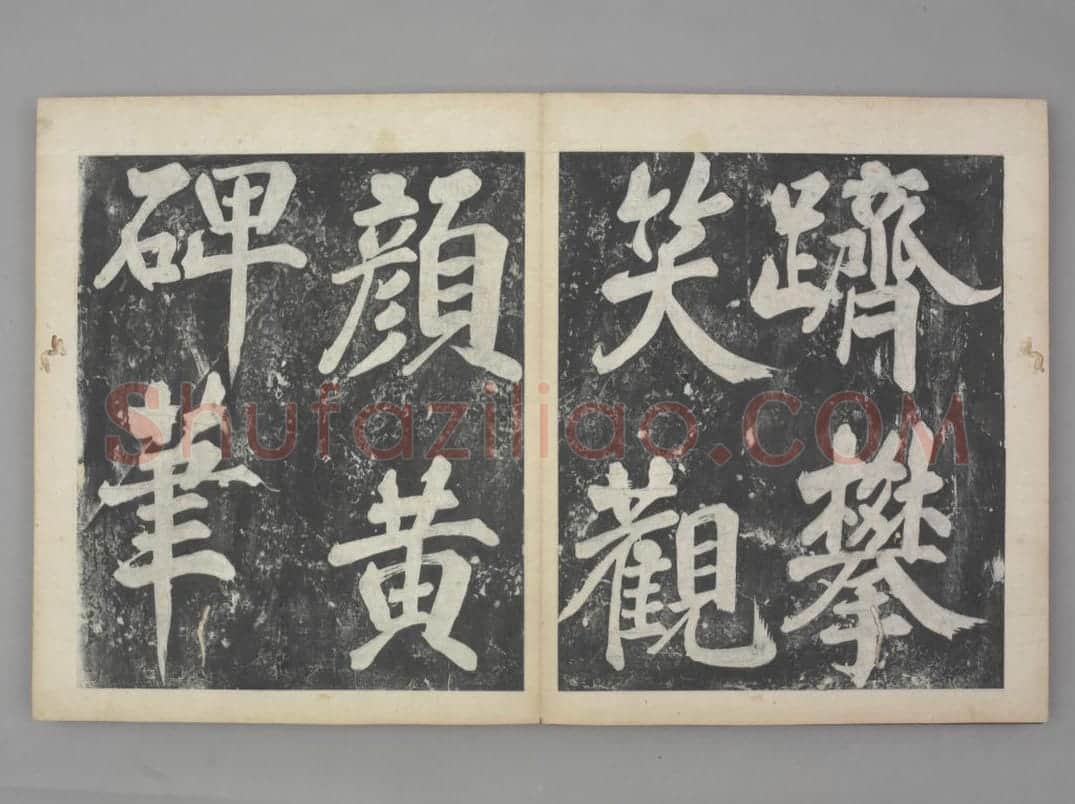 躋攀
笑觀
顔黄
碑筆
Shufaziliao.COM